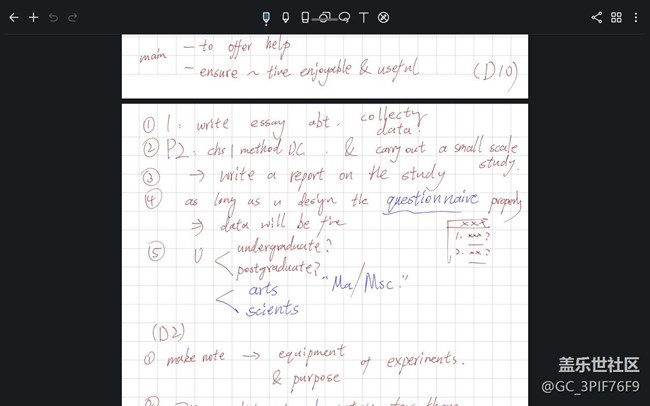 main - to offer help
- ensure ~ tive enjoyable & useful
(D10)
① 1: write essay abt. collecty data?
② P2: chs 1 method DC & carry out a small scale study.
③ → write a report on the study
④ as long as u design the questionnaire properly
⇒ data will be five
xxx
1. xxx?
2. xx?
⑤ U < undergraduate?
postgraduate?
< arts "Ma/Msc."
scients
(D2)
① make note → equipment & purpose of experiments.
盖乐世社区
@GC_3PIF76F9